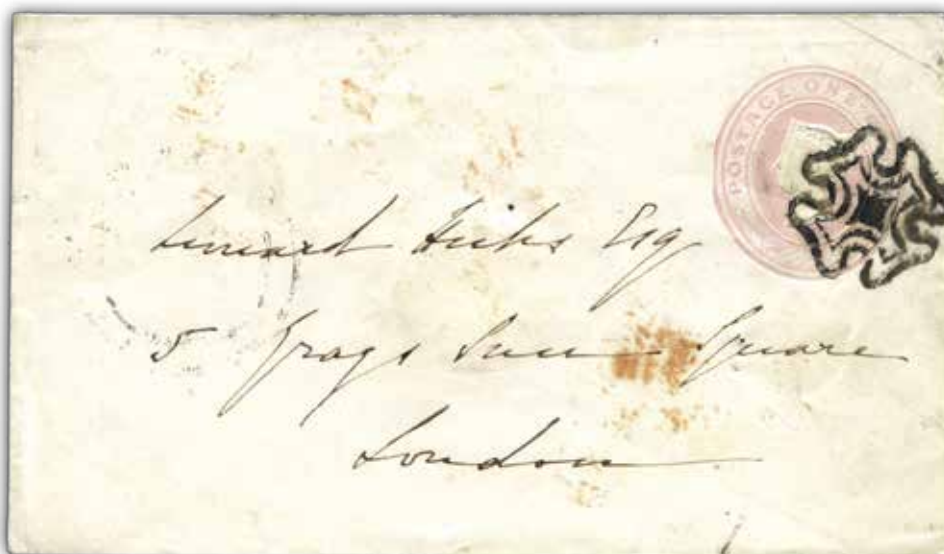 POSTAGE ONE
Lennard Hicks Esq
5 Grays Inn Square
London